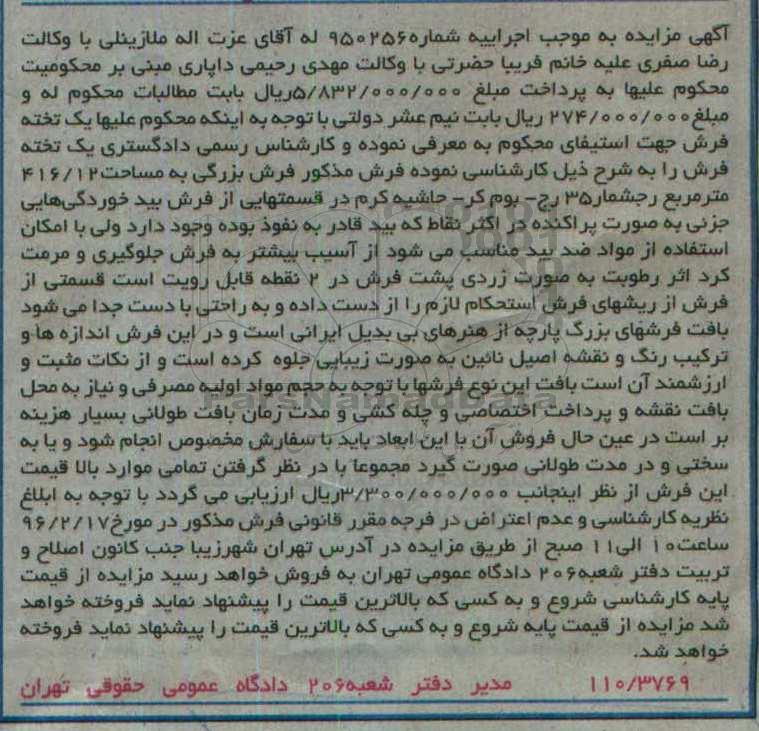 آگهی مزایده به موجب اجراییه شماره۹۵۰۲۵۶ له آقای عزت اله ملازینلی با وکالت
رضا صفری علیه خانم فریبا حضرتی با وکالت مهدی رحیمی داپاری مبنی بر محکومیت
محکوم علیها به پرداخت مبلغ ۵/۸۳۲/۰۰۰/۰۰۰ریال بابت مطالبات محکوم له و
مبلغ۲۷۴/۰۰۰/۰۰۰ ریال بابت نیم عشر دولتی با توجه به اینکه محکوم علیها یک تخته
فرش جهت استیفای محکوم به معرفی نموده و کارشناس رسمی دادگستری یک تخته
فرش را به شرح ذیل کارشناسی نموده فرش مذکور فرش بزرگی به مساحت۴۱۶/۱۲
مترمربع رجشمار۳۵ رج- بوم کر- حاشیه کرم در قسمتهایی از فرش بید خوردگی‌هایی
جزئی به صورت پراکنده در اکثر نقاط که بید قادر به نفوذ بوده وجود دارد ولی با امکان
استفاده از مواد ضد بید مناسب می شود از آسیب بیشتر به فرش جلوگیری و مرمت
کرد اثر رطوبت به صورت زردی پشت فرش در ۲ نقطه قابل رویت است قسمتی از
فرش از ریشهای فرش استحکام لازم را از دست داده و به راحتی با دست جدا می شود
بافت فرشهای بزرگ پارچه از هنرهای بی بدیل ایرانی است و در این فرش اندازه ها و
ترکیب رنگ و نقشه اصیل نائین به صورت زیبایی جلوه کرده است و از نکات مثبت و
ارزشمند آن است بافت این نوع فرشها با توجه به حجم مواد اولیه مصرفی و نیاز به محل
بافت نقشه و پرداخت اختصاصی و چله کشی و مدت زمان بافت طولانی بسیار هزینه
بر است در عین حال فروش آن با این ابعاد باید با سفارش مخصوص انجام شود و یا به
سختی و در مدت طولانی صورت گیرد مجموعاً با در نظر گرفتن تمامی موارد بالا قیمت
این فرش از نظر اینجانب ۳/۳۰۰/۰۰۰/۰۰۰ریال ارزیابی می گردد با توجه به ابلاغ
نظریه کارشناسی و عدم اعتراض در فرجه مقرر قانونی فرش مذکور در مورخ۹۶/۲/۱۷
ساعت۱۰ الی۱۱ صبح از طریق مزایده در آدرس تهران شهرزیبا جنب کانون اصلاح و
تربیت دفتر شعبه۲۰۶ دادگاه عمومی تهران به فروش خواهد رسید مزایده از قیمت
پایه کارشناسی شروع و به کسی که بالاترین قیمت را پیشنهاد نماید فروخته خواهد
شد مزایده از قیمت پایه شروع و به کسی که بالاترین قیمت را پیشنهاد نماید فروخته
خواهد شد.
۱۱۰/۳۷۶۹ مدیر دفتر شعبه۲۰۶ دادگاه عمومی حقوقی تهران
ParsNamadData